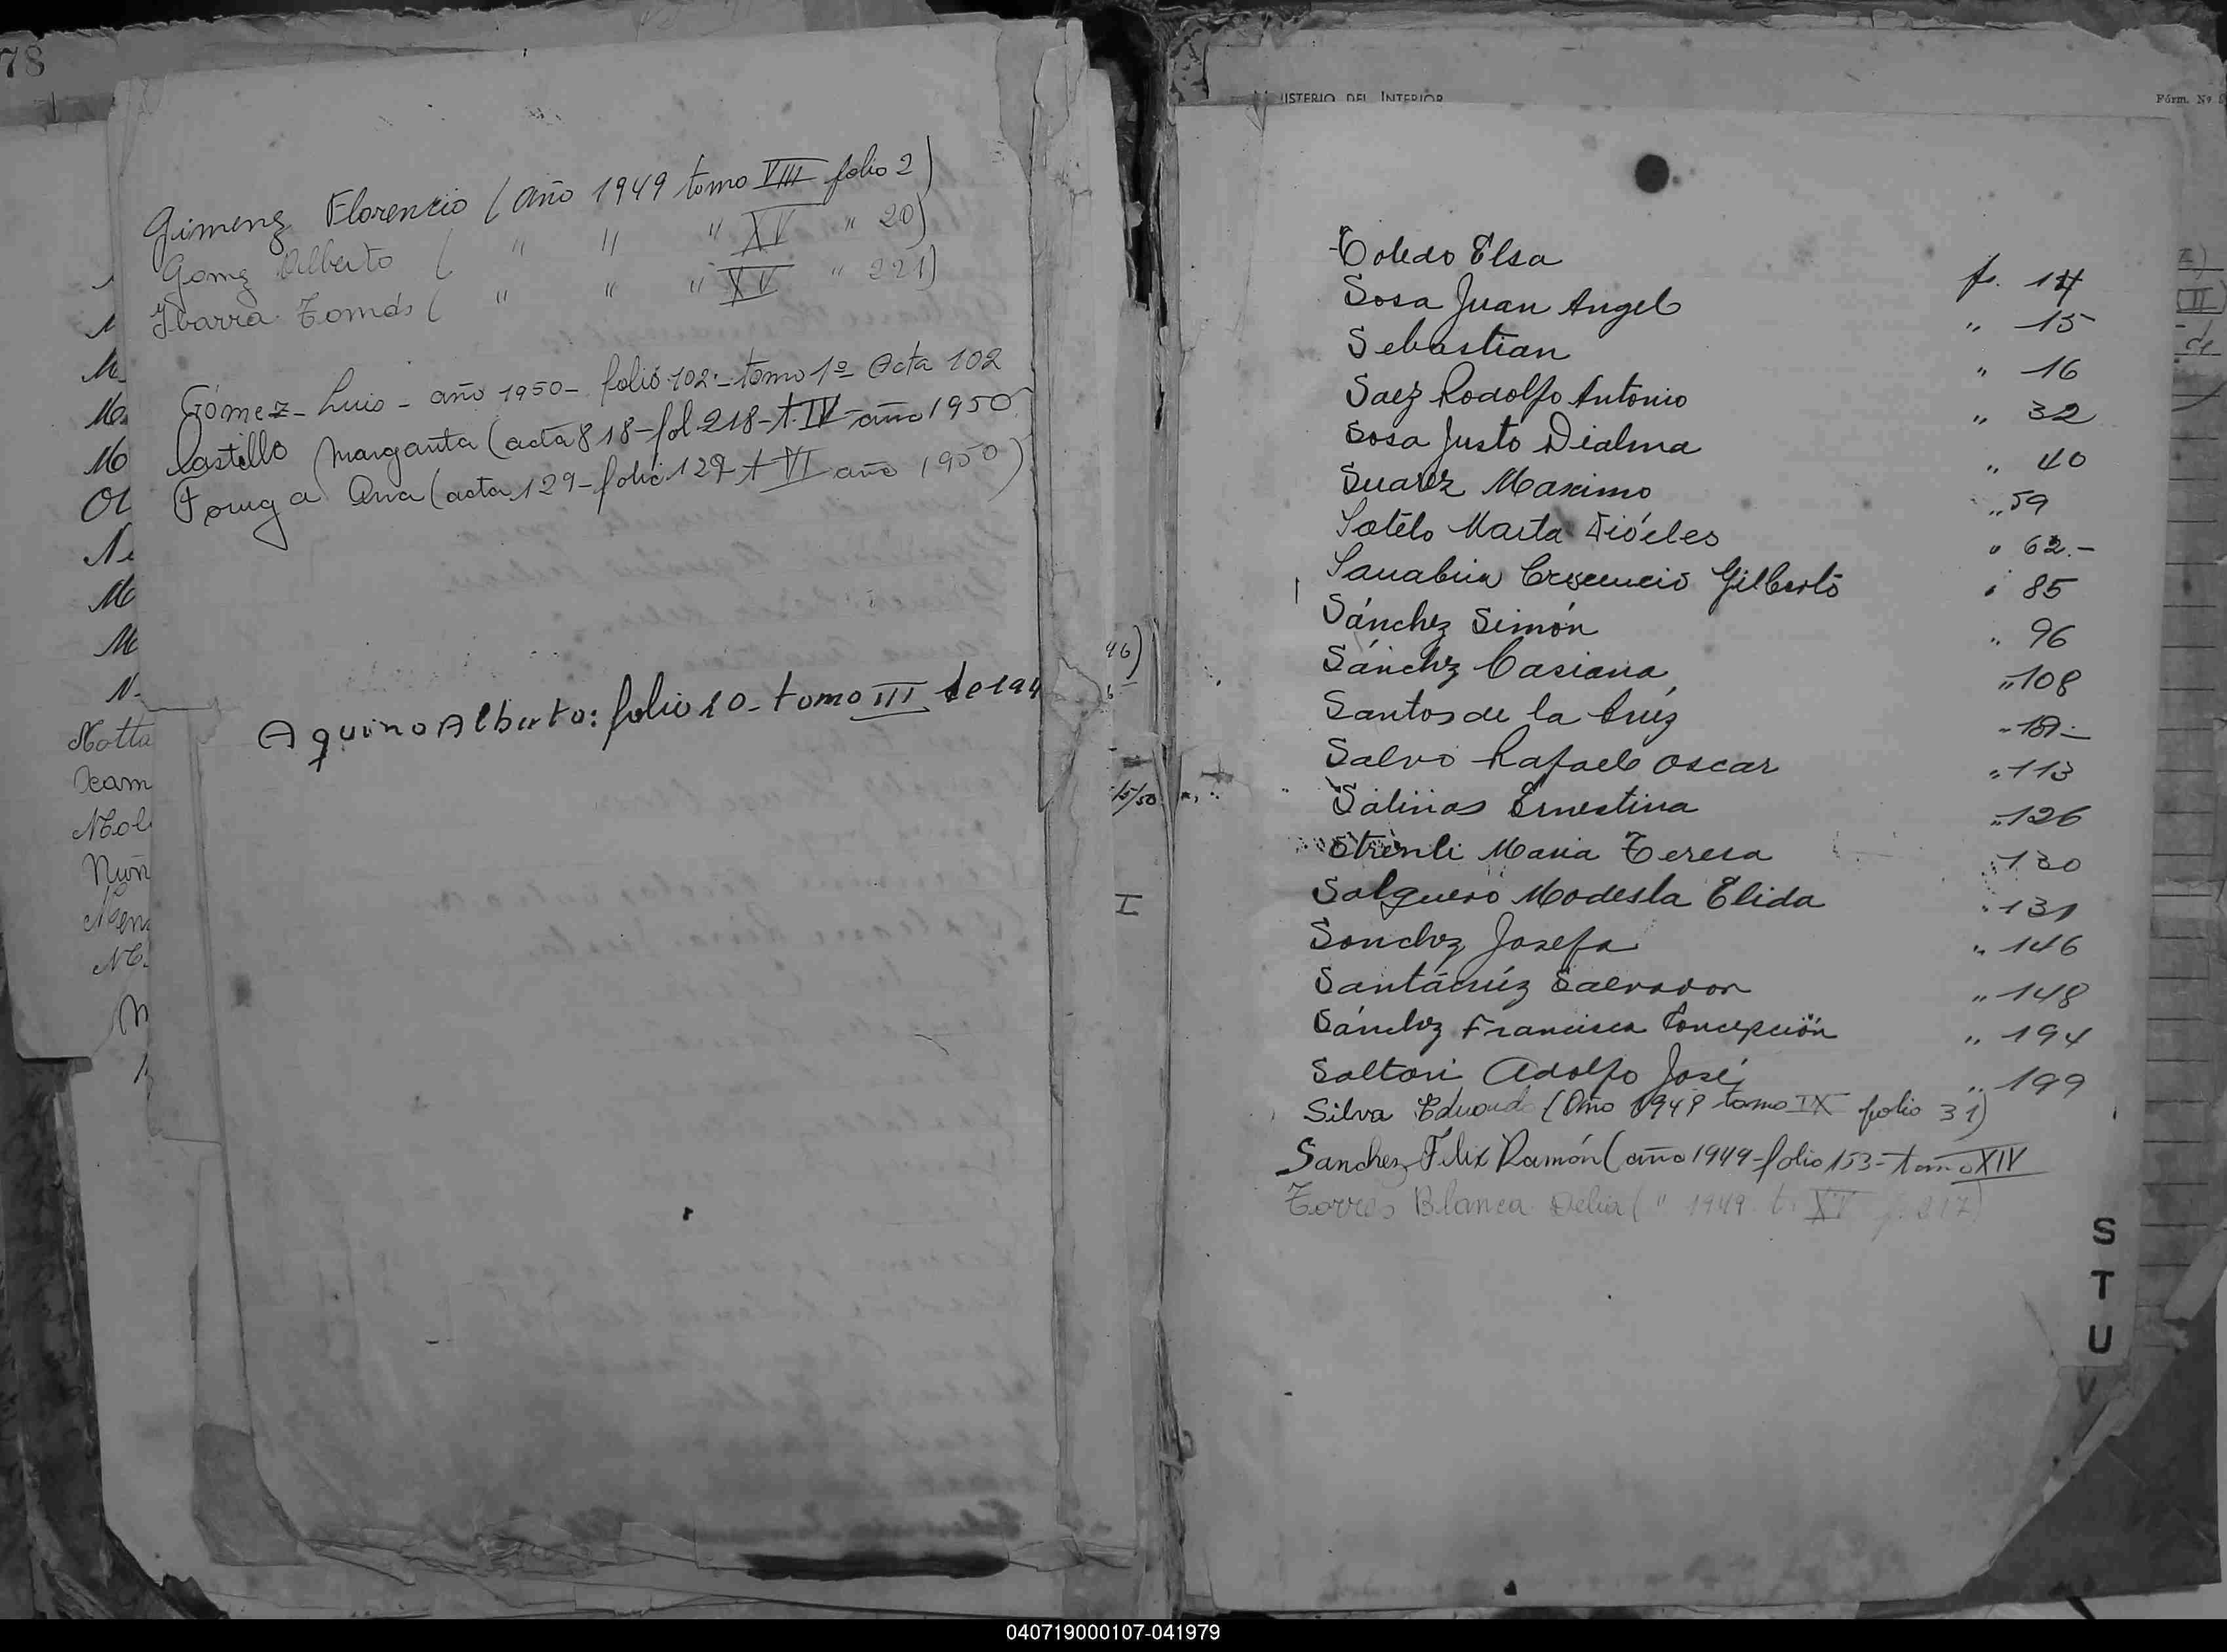 78
Gimenz Florencio (Año 1949 tomo VIII folio 2)
Gomz Alberto ( " " " XV " 20)
Ybarra Tomás ( " " " XV " 221)
Gómez - Luis - año 1950 - folio 102 - tomo 1º Acta 102
Castillo Margarita (acta 818 - fol 218 - t. IV - año 1950
Ana (acta 129 - folio 129 t VI año 1950)
Aquino Alberto: folio 10 - tomo III de 194
M
M
Ol
Ne
M
M
N-
Notta
Mol
Nuñ
46)
15/50
I
MINISTERIO DEL INTERIOR
Fórm. Nº
Toledo Elsa fo. 14
Sosa Juan Angel " 15
Sebastian " 16
Saez Rodolfo Antonio " 32
Sosa Justo Dialma " 40
Suarez Maximo " 59
Sotelo Marta " 62.-
Sanabria Crecencio Gilberto " 85
Sánchez Simón " 96
Sánchz Casiana " 108
Santos de la Cruz
Salvo Rafael Oscar " 113
Salinas Ernestina " 126
Maria Teresa " 130
Salguero Modesta Elida " 131
Sanchez Josefa " 146
Santacrúz Salvador " 148
Sánchez Francisca Concepción " 194
Saltori Adolfo José " 199
Silva Eduardo (Año 1949 tomo IX folio 31)
Sanchez Félix Ramón (año 1949 - folio 153 - tomo XIV
Torres Blanca Delia ( " 1949 t. XV f. 217)
S
T
U
V
040719000107-041979